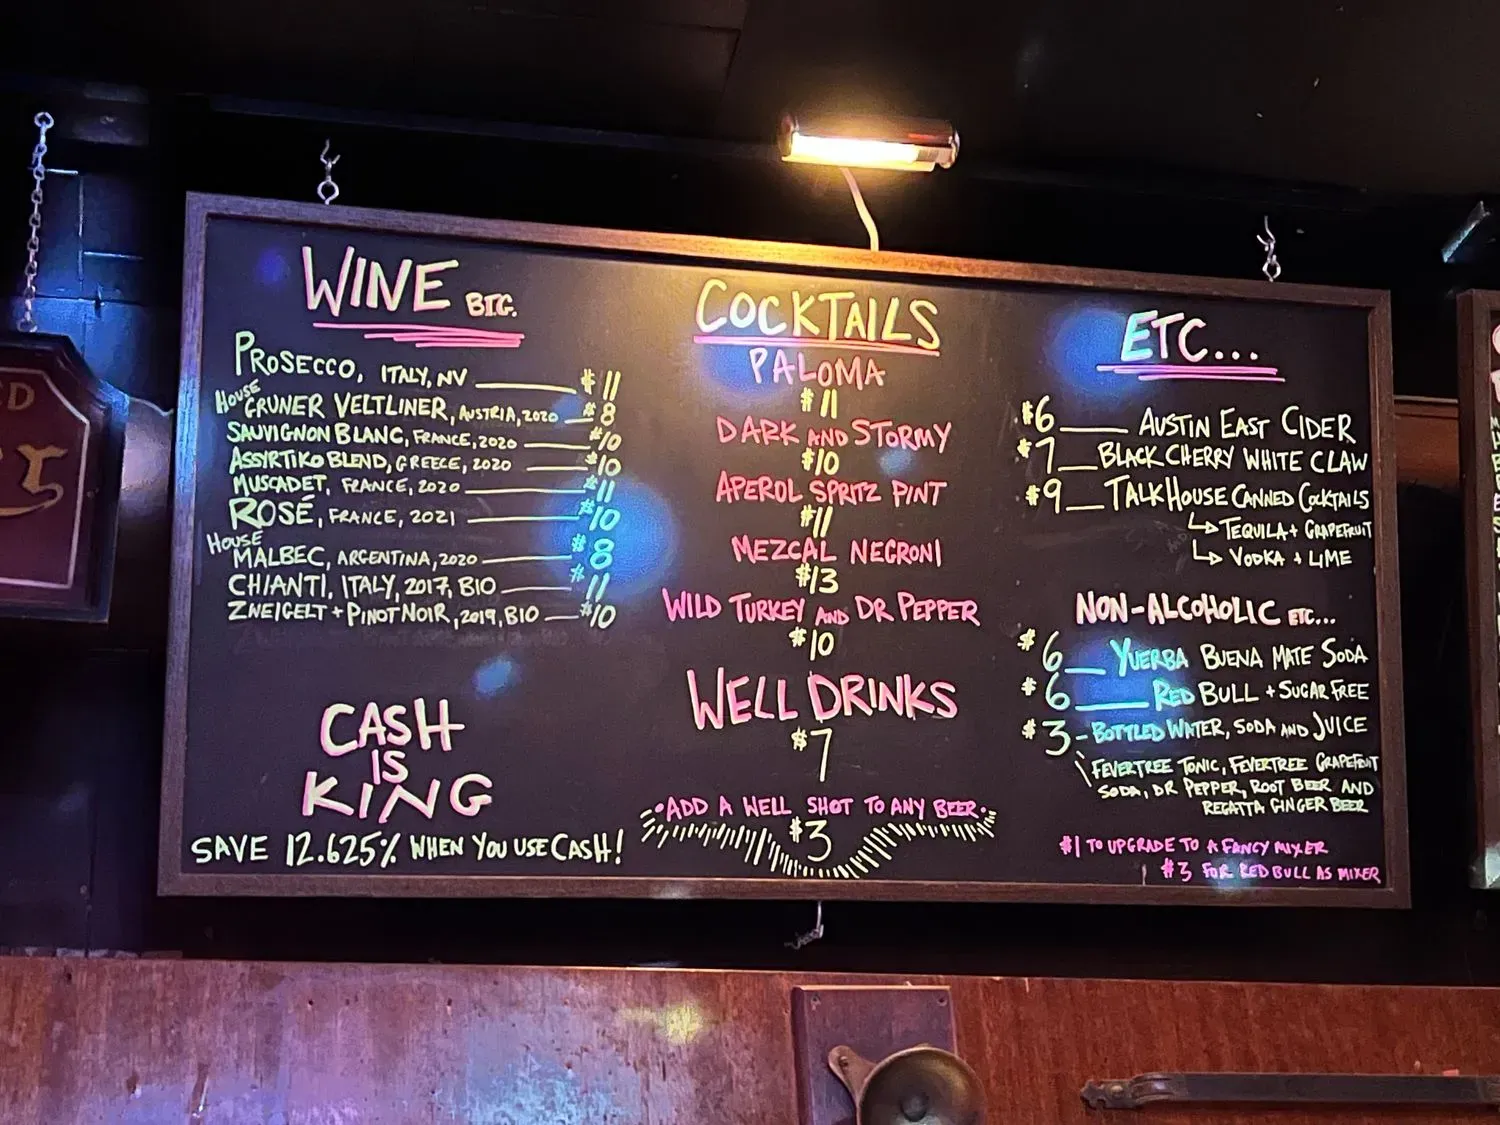 WINE BTG.
PROSECCO, ITALY, NV $11
HOUSE
GRUNER VELTLINER, AUSTRIA, 2020 $8
SAUVIGNON BLANC, FRANCE, 2020 $10
ASSYRTIKO BLEND, GREECE, 2020 $10
MUSCADET, FRANCE, 2020 $11
ROSÉ, FRANCE, 2021 $10
HOUSE
MALBEC, ARGENTINA, 2020 $8
CHIANTI, ITALY, 2017, BIO $11
ZWEIGELT + PINOT NOIR, 2019, BIO $10
CASH
IS
KING
SAVE 12.625% WHEN YOU USE CASH!
COCKTAILS
PALOMA
$11
DARK AND STORMY
$10
APEROL SPRITZ PINT
$11
MEZCAL NEGRONI
$13
WILD TURKEY AND DR PEPPER
$10
WELL DRINKS
$7
ADD A WELL SHOT TO ANY BEER
$3
ETC...
$6 AUSTIN EAST CIDER
$7 BLACK CHERRY WHITE CLAW
$9 TALKHOUSE CANNED COCKTAILS
TEQUILA + GRAPEFRUIT
VODKA + LIME
NON-ALCOHOLIC ETC...
$6 YUERBA BUENA MATE SODA
$6 RED BULL + SUGAR FREE
$3 - BOTTLED WATER, SODA AND JUICE
FEVERTREE TONIC, FEVERTREE GRAPEFRUIT
SODA, DR PEPPER, ROOT BEER AND
REGATTA GINGER BEER
$1 TO UPGRADE TO A FANCY MIXER
$3 FOR RED BULL AS MIXER